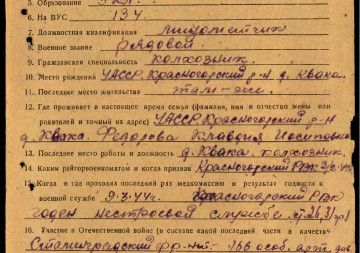 5. Образование
6. На ВУС 134
7. Должностная квалификация
8. Военное звание Рядовой
9. Гражданская специальность колхозник
10. Место рождения УАССР, Красногорский р-н д. Квака
11. Последнее место жительства там-же
12. Где проживает в настоящее время семья (фамилия, имя и отчество жены или
родителей и точный их адрес) УАССР, Красногорский р-н
д. Квака. Федорова Клавдия
13. Последнее место работы и должность д. Квака. колхозник.
14. Каким райгорвоенкоматом и когда призван Красногорский РВК
15. Когда и где проходил последний раз медкомиссию и результат годности к
военной службе 9.3.44г. Красногорский РВК
годен нестроевой службе. ст.
16. Участие в Отечественной войне (в составе какой последней части и в качестве
Сталинградский фр-нт. 166 особ. арт. див.